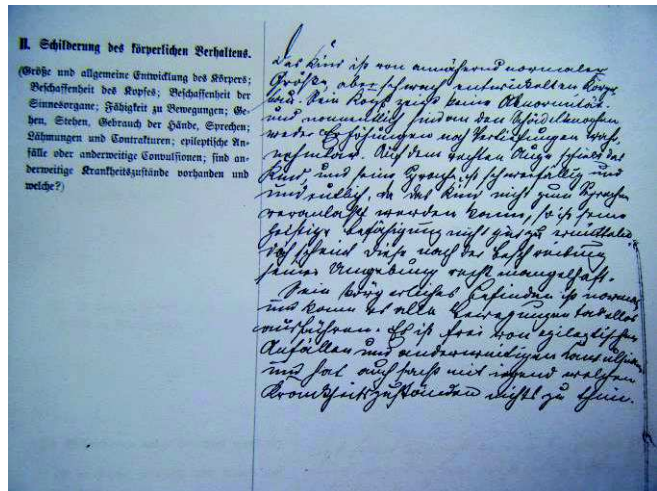 II. Schilderung des körperlichen Verhaltens.
(Größe und allgemeine Entwicklung des Körpers;
Beschaffenheit des Kopfes; Beschaffenheit der
Sinnesorgane; Fähigkeit zu Bewegungen; Ge-
hen, Stehen, Gebrauch der Hände, Sprechen;
Lähmungen und Contrakturen; epileptische An-
fälle oder anderweitige Convulsionen; sind an-
derweitige Krankheitszustände vorhanden und
welche?)
Das Kind ist von annähernd normaler
Größe, aber schwach entwickelten Körper
bau. Sein Kopf zeigt keine Abnormität
und namentlich sind an den Schädelknochen
weder Erhöhungen noch Vertiefungen wahr-
nehmbar. Auf dem rechten Auge schielt das
Kind und seine Sprache ist schwerfällig und
undeutlich, da das Kind nicht zum Sprechen
veranlaßt werden kann, so ist seine
geistige Befähigung nicht gut zu ermitteln,
doch scheint diese nach der Beschreibung
seiner Umgebung recht mangelhaft.
Sein körperliches Befinden ist normal
und kann es alle Bewegungen tadellos
ausführen. Es ist frei von epileptischen
Anfällen und anderweitigen Convulsionen
und hat auch sonst mit irgend welchen
Krankheitszuständen nichts zu thun.